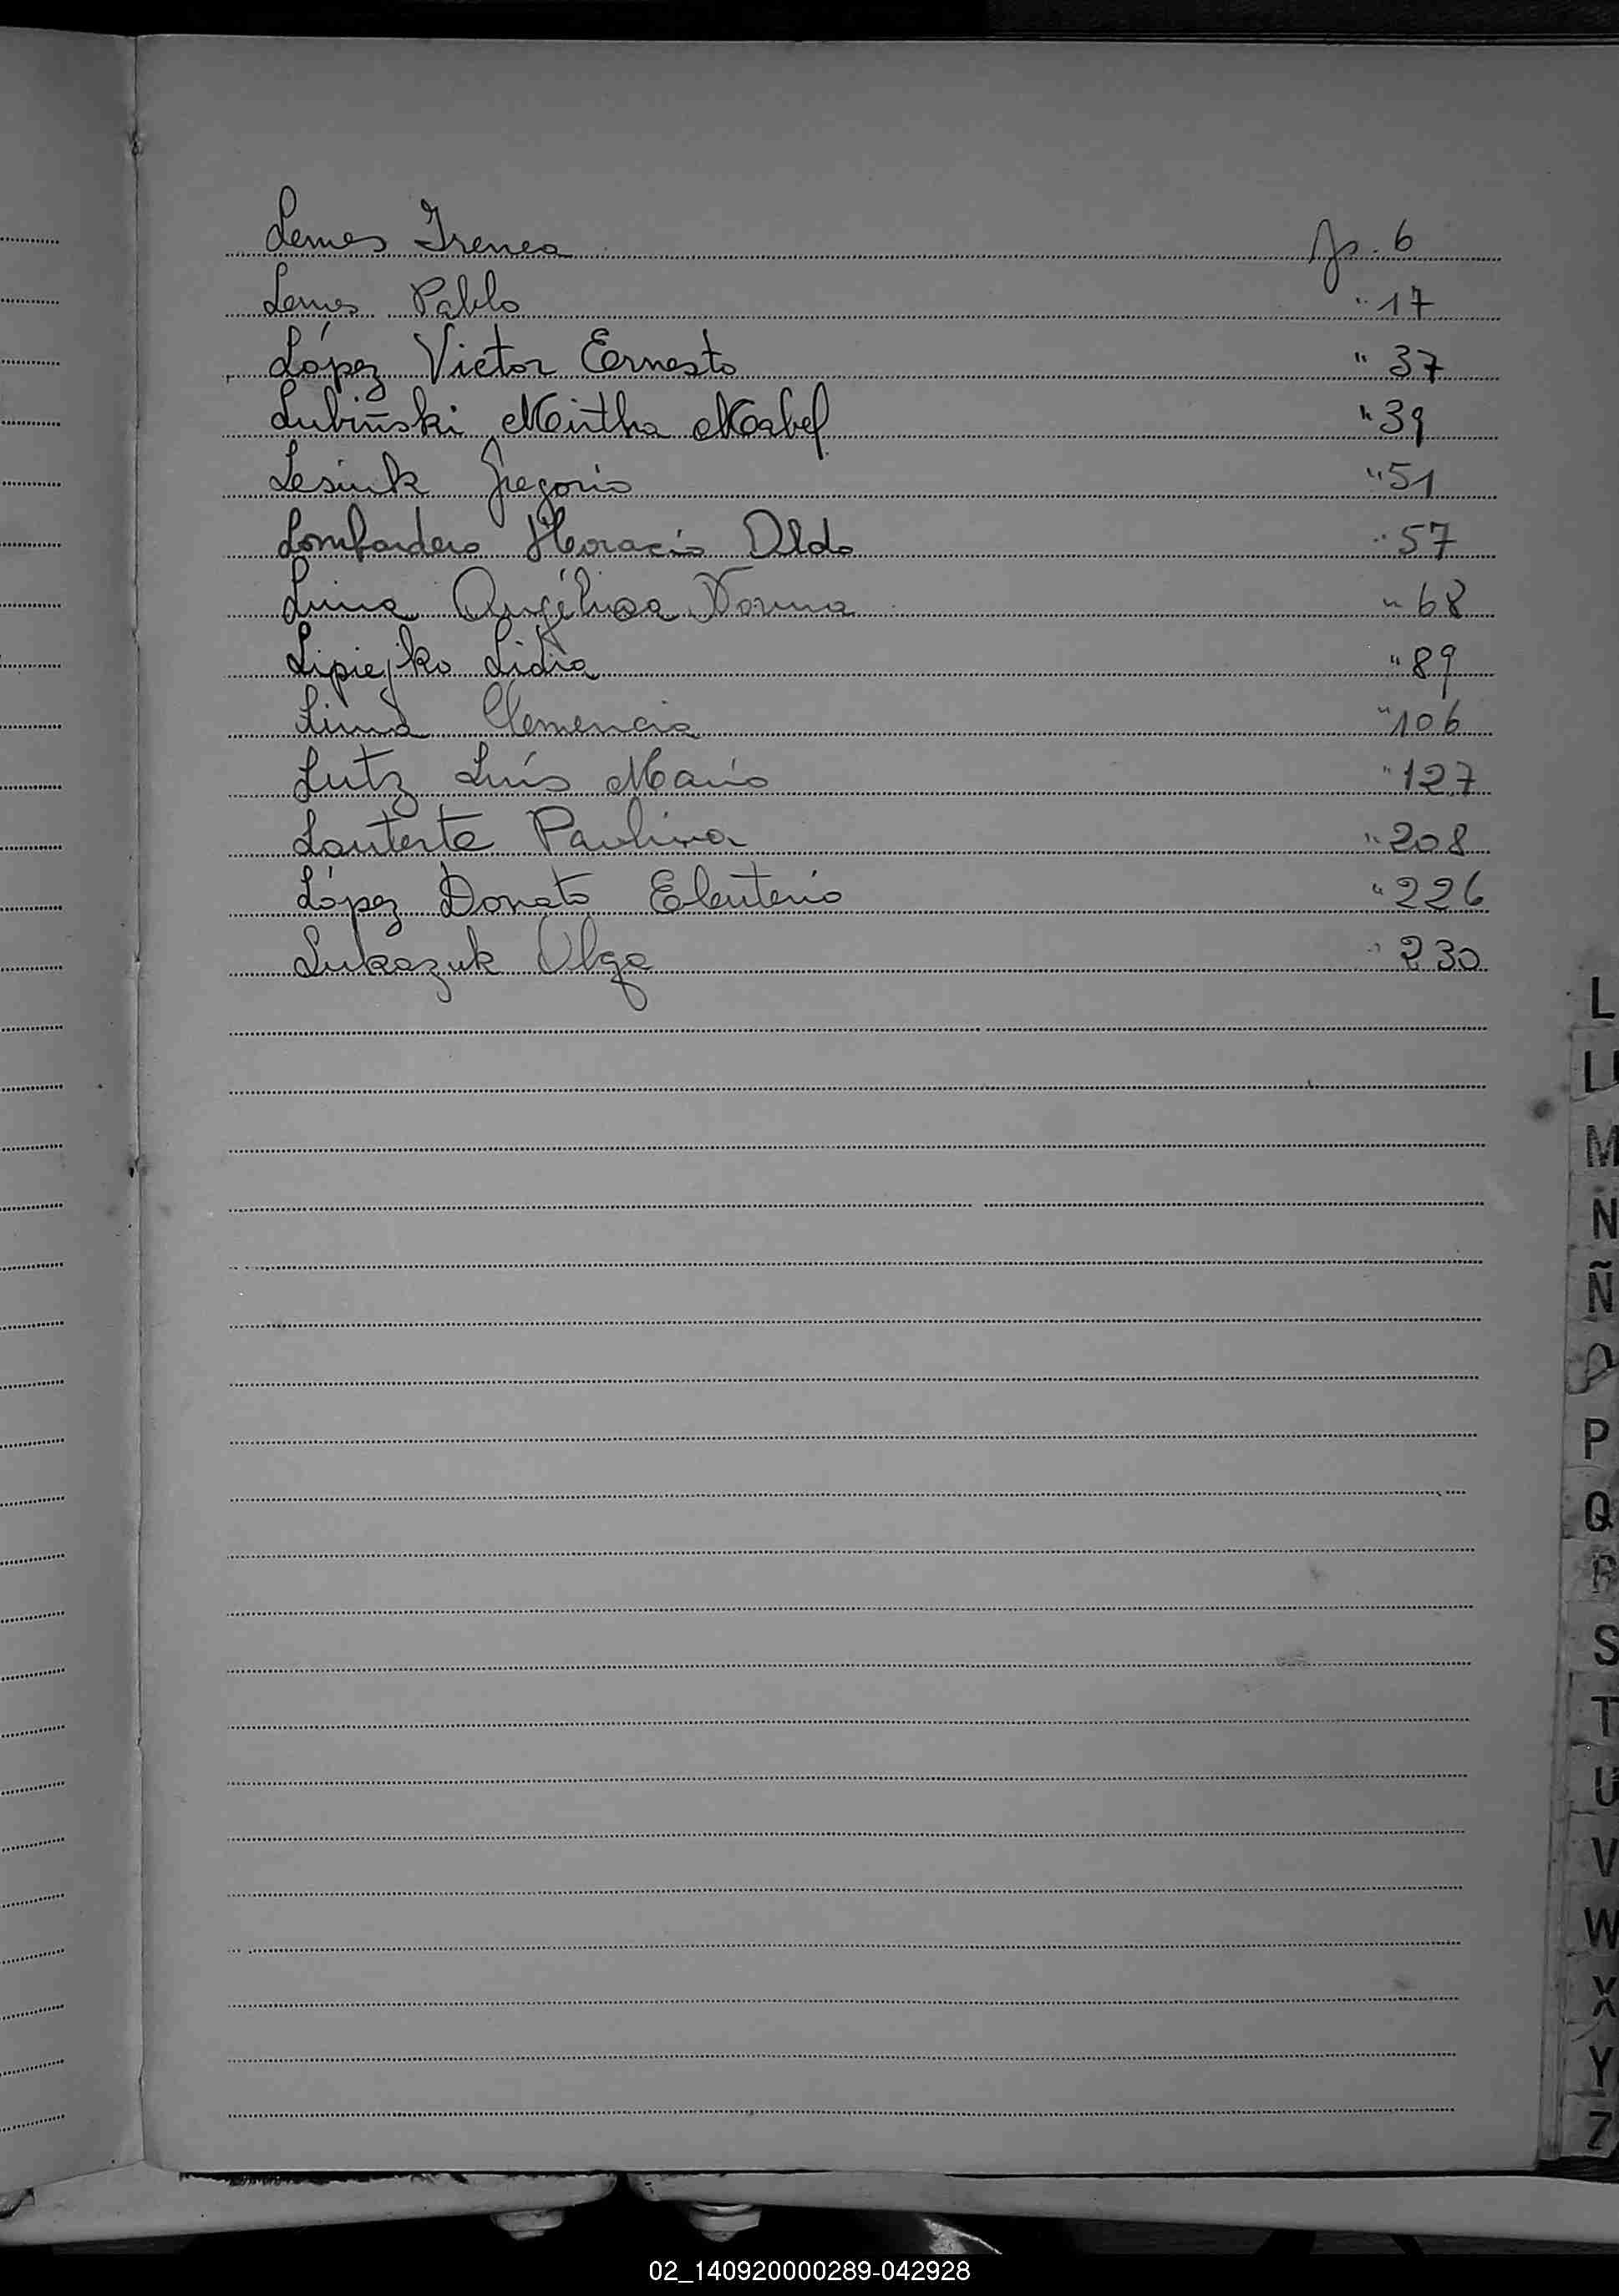 Lemes Irenea fs. 6
Lemes Pablo " 17
López Victor Ernesto " 37
Lubiñski Mirtha Mabel " 39
Lesiuk Gregorio " 51
Lombardero Horacio Aldo " 57
Luna Angélica Norma " 68
Lipiejko Lidia " 89
Lima Clemencia " 106
Lutz Luís Mario " 127
Lauterte Paulina " 208
López Donato Eleuterio " 226
Lukazuk Olga " 230
L
LL
M
N
Ñ
O
P
Q
R
S
T
U
V
W
X
Y
Z
02_140920000289-042928